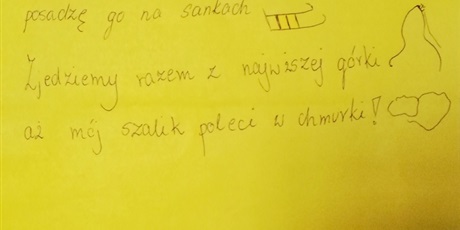 posadzę go na sankach
Zjedziemy razem z najwiższej górki
aż mój szalik poleci w chmurki!